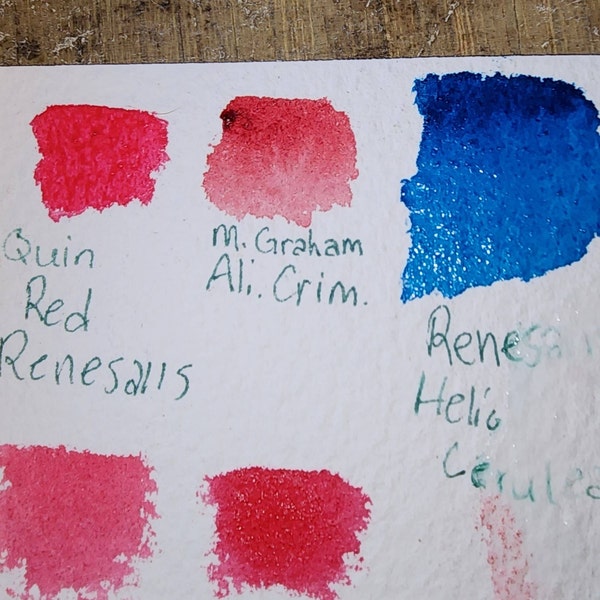 Quin
Red
Renesalls
M. Graham
Ali. Crim.
Renesall
Helio
Cerulea